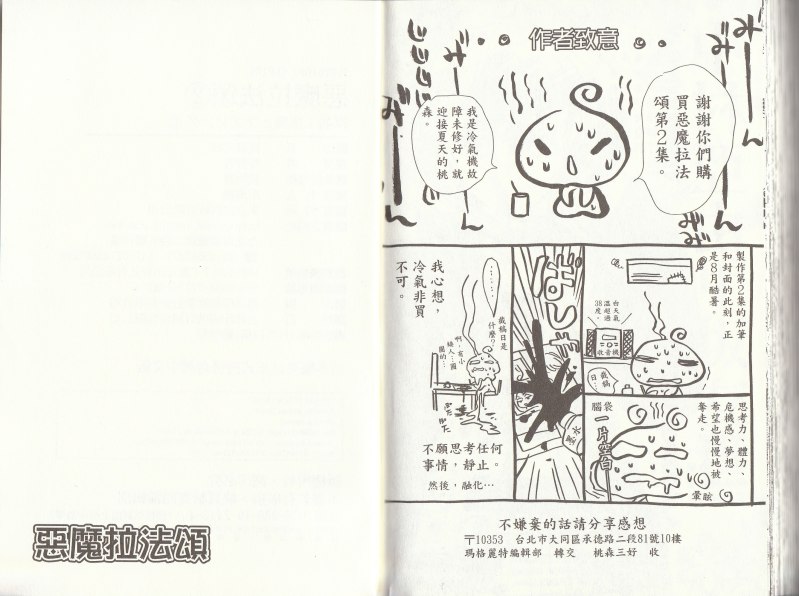 作者致意
謝謝你們購
買惡魔拉法
頌第2集。
我是冷氣機故
障未修好，就
迎接夏天的桃
森。
みーーん
みーーん
製作第2集的加筆
和封面的此刻，正
是8月酷暑。
白天氣
溫超過
38度。
收音機
截稿
日
思考力、體力、
危機感、夢想、
希望也慢慢地被
奪走。
腦袋
一片空白
暈眩
ばしゃ
我心想，
冷氣非買
不可。
截稿日是
什麼？
啊，有小
矮人…圍
圈的…
不願思考任何
事情，靜止。
然後，融化…
不嫌棄的話請分享感想
〒10353 台北市大同區承德路二段81號10樓
瑪格麗特編輯部 轉交 桃森三好 收
惡魔拉法頌